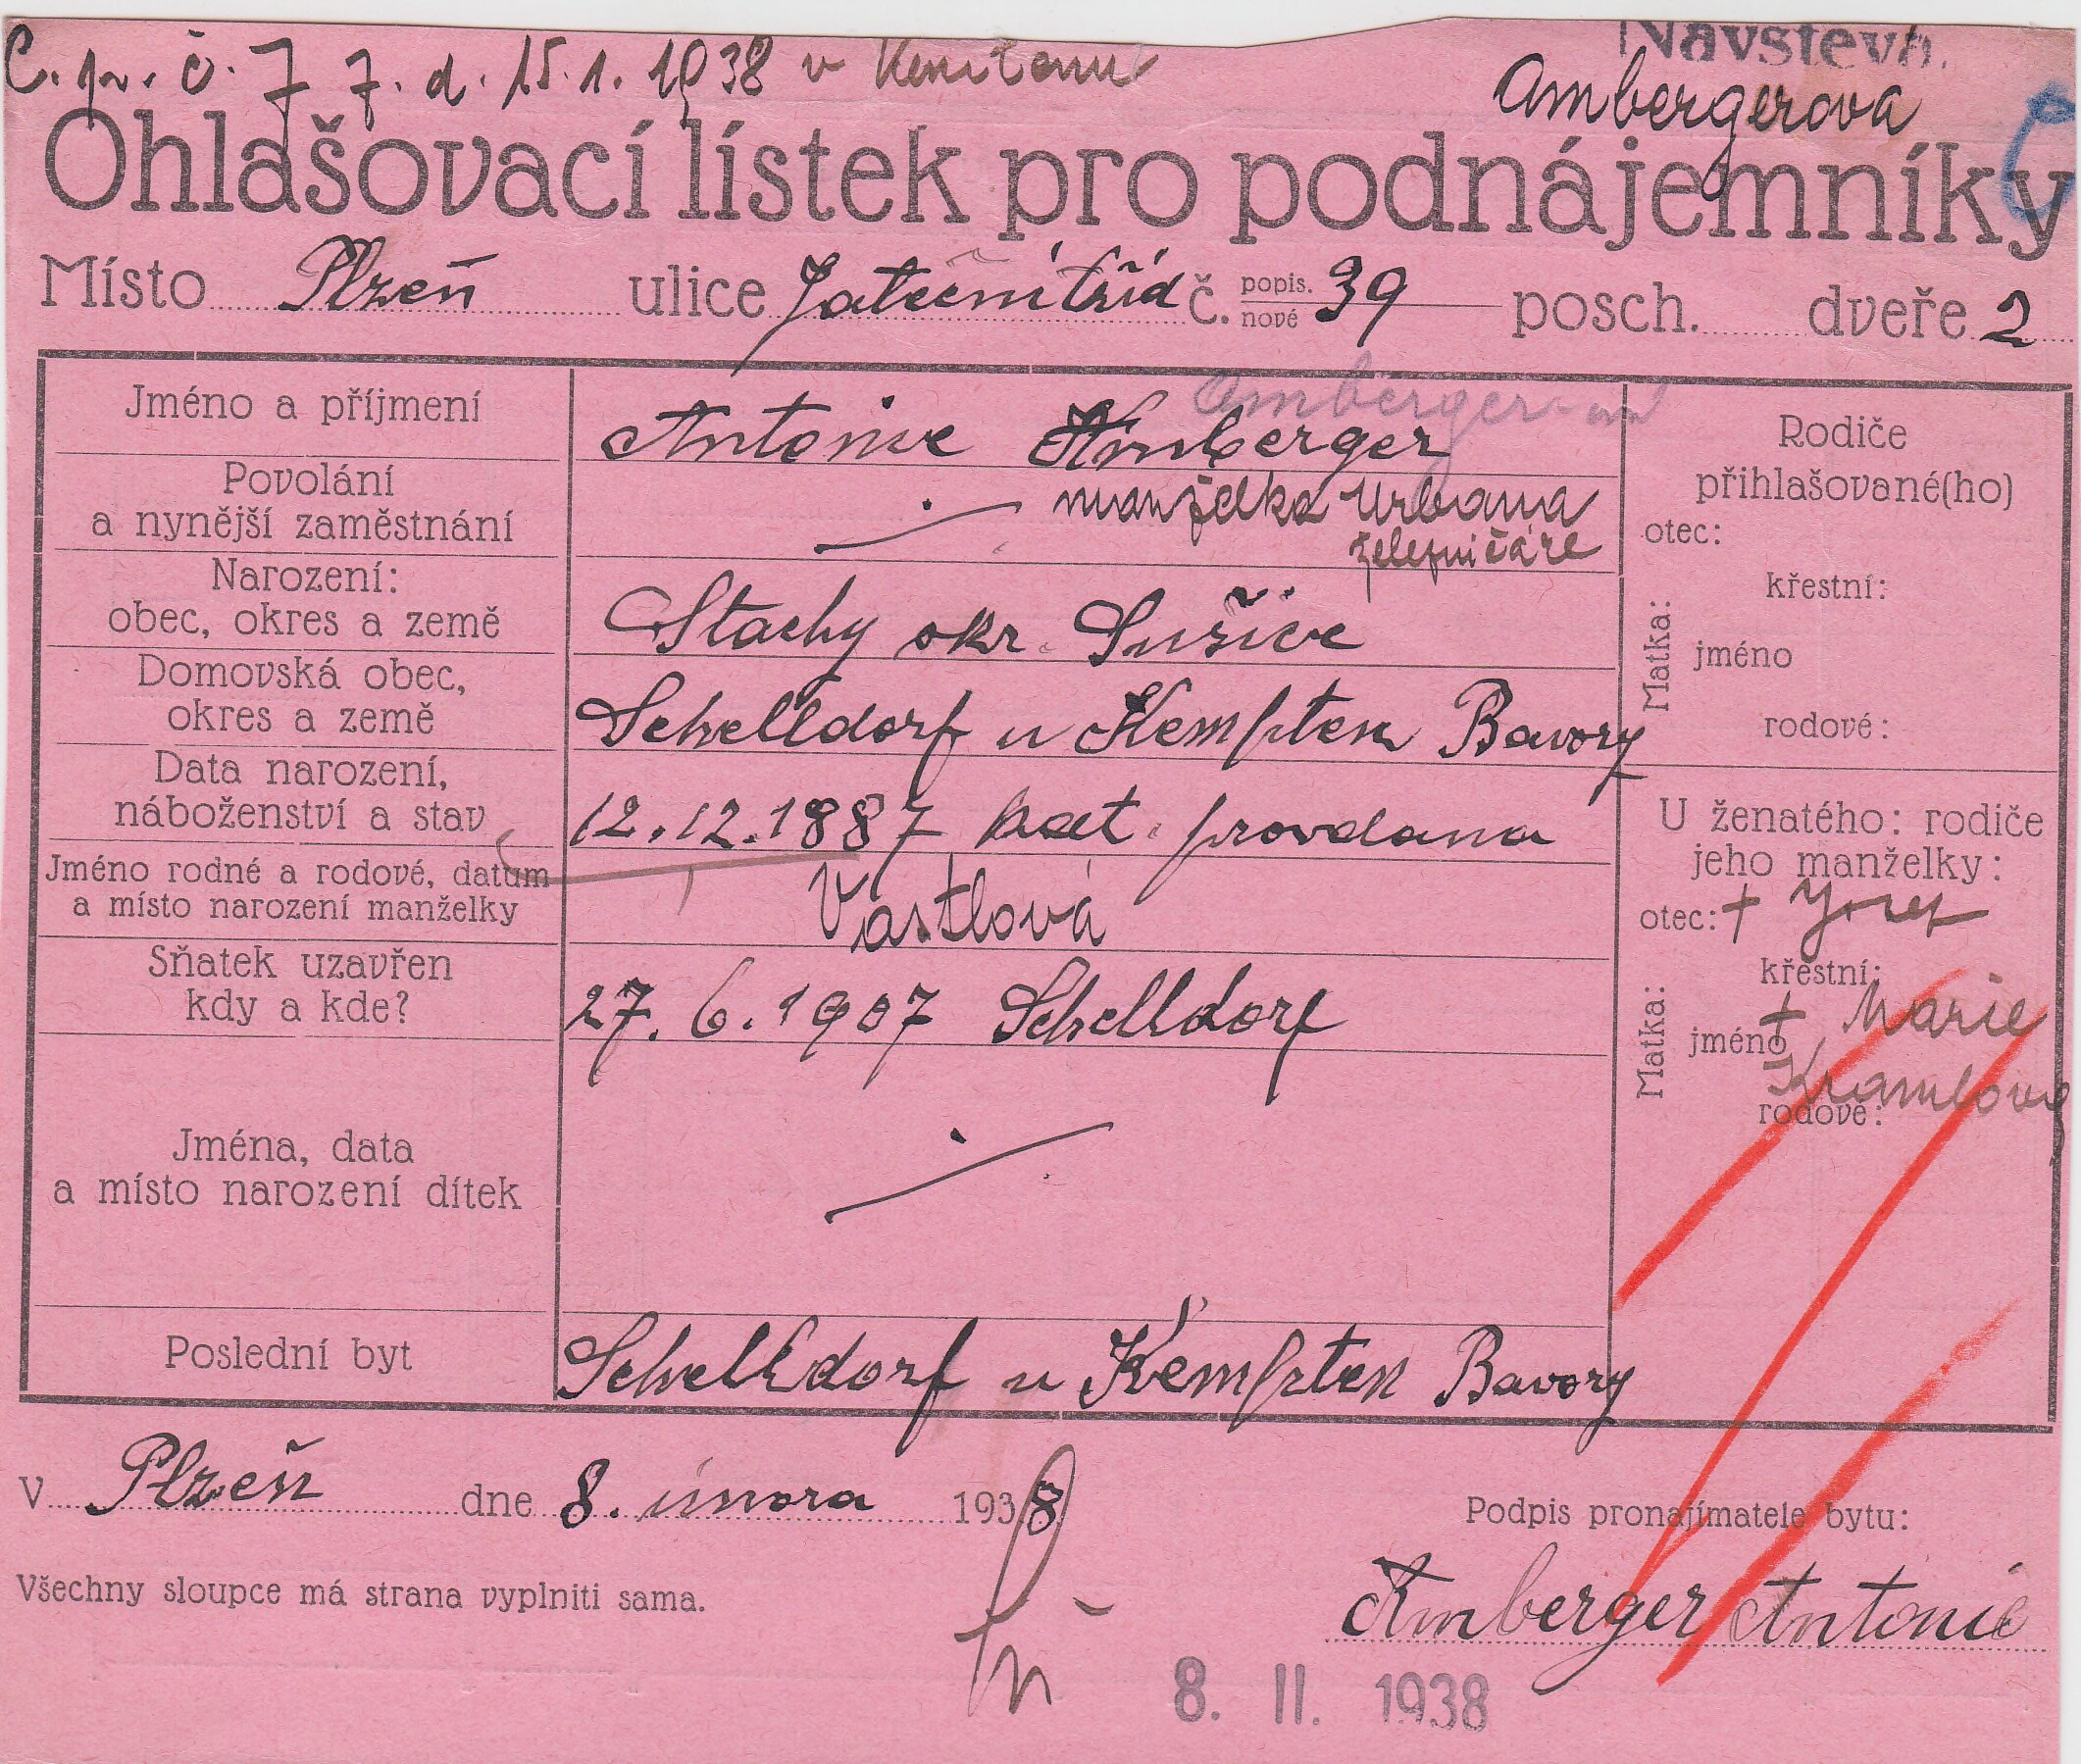 C. p. č. 7 z. d. 15.1.1938 v Kemptenu
Návštěva.
Ambergerova
Ohlašovací lístek pro podnájemníky
Místo Plzeň ulice Jateční tříd č. popis. nové 39 posch. dveře 2
Jméno a příjmení
Antonie Amberger
Amberger-ová
Povolání
a nynější zaměstnání
manželka Urbana
železničáře
Narození:
obec, okres a země
Stachy okr. Sušice
Domovská obec,
okres a země
Schelldorf u Kempten Bavory
Data narození,
náboženství a stav
12.12.1887 kat. provdana
Jméno rodné a rodové, datum
a místo narození manželky
Vastlová
Sňatek uzavřen
kdy a kde?
27. 6. 1907 Schelldorf
Jména, data
a místo narození dítek
Poslední byt
Schelldorf u Kempten Bavory
Rodiče
přihlašované(ho)
otec:
Matka:
křestní:
jméno
rodové:
U ženatého: rodiče
jeho manželky:
otec: + Josef
Matka:
křestní:
jméno + Marie
rodové:
v Plzeň dne 8. února 1938
Podpis pronajímatele bytu:
Všechny sloupce má strana vyplniti sama.
Amberger Antonie
8. II. 1938